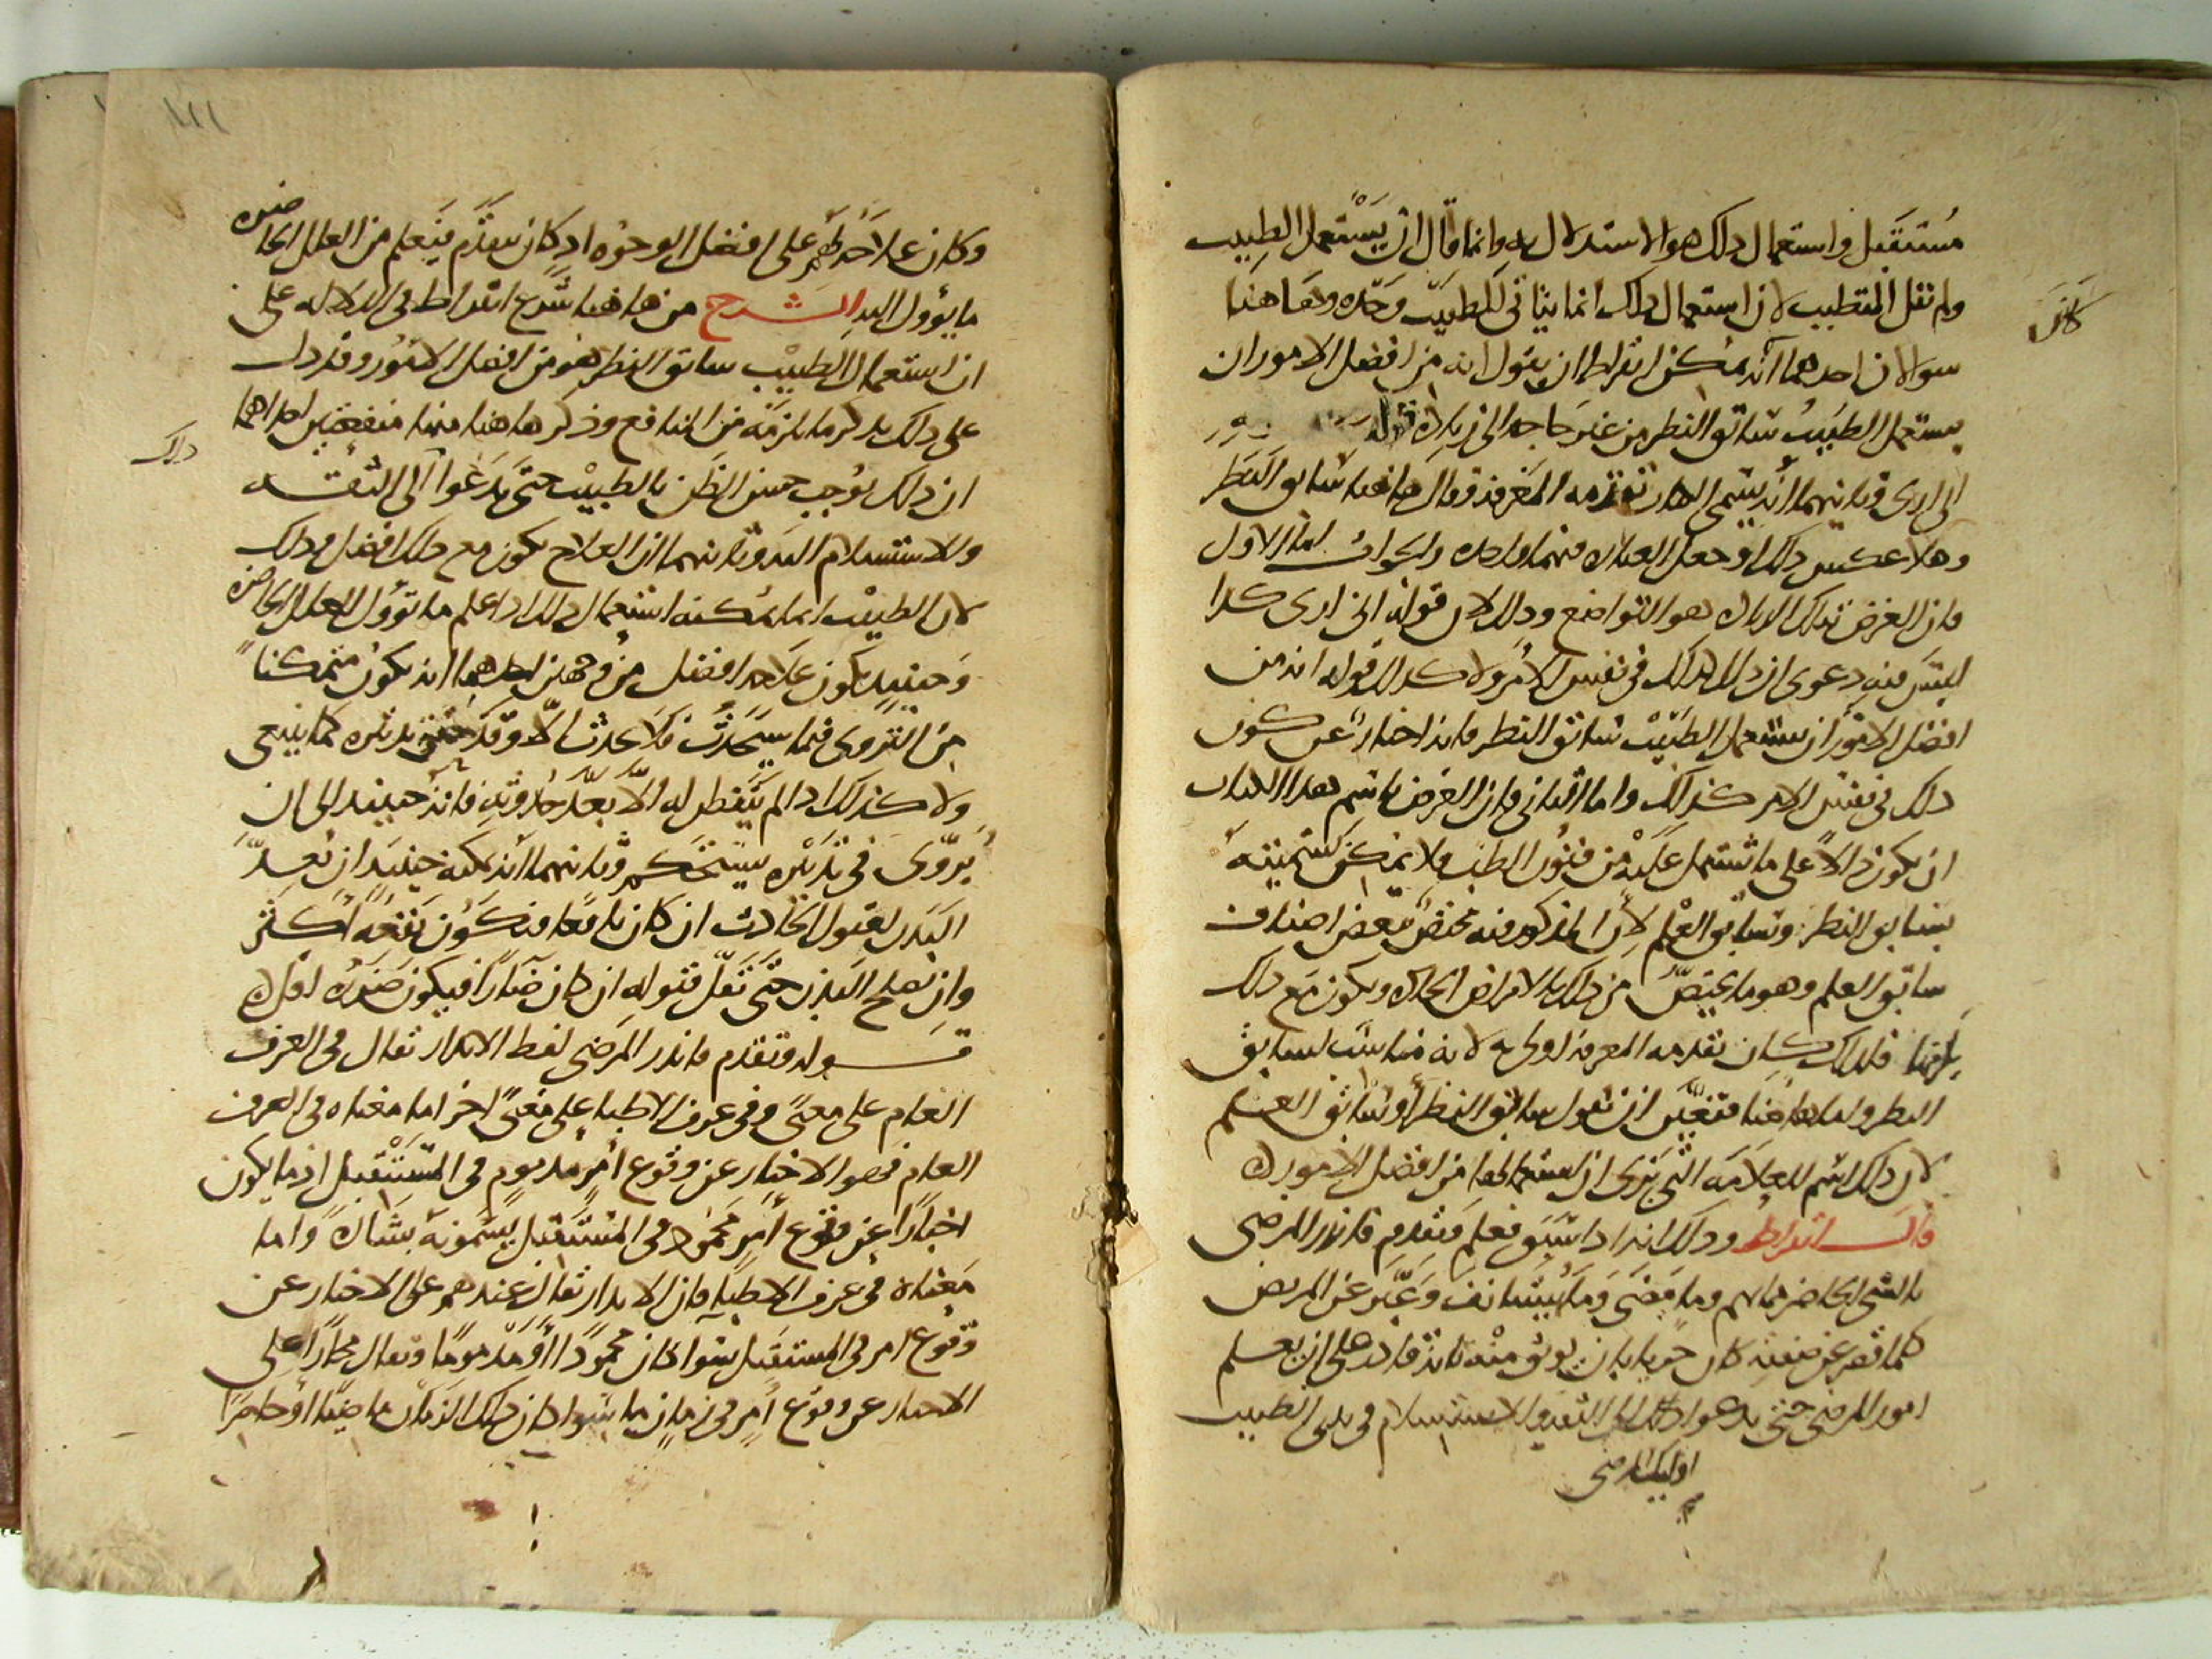 مستقبل واستعمال ذلك هو الاستدلال به وانما قال ان يستعمل الطبيب
ولم نقل المتطبب لان استعمال ذلك انما يتاتى للطبيب وحده وهاهنا
كانك
سوالان احدهما انه يمكن ابقراط ان يقول انه من افضل الامور ان
يستعمل الطبيب سابق النظر من غير حاجة الى زيادة قوله
انى ارى وثانيهما انه يسمى الكتاب تقدمة المعرفة وقال هاهنا سابق النظر
وهلا عكس ذلك او جعل العبارة فيهما واحدة والجواب اما الاول
فان الغرض بتلك الزيادة هو التواضع وذلك لان قوله انى ارى كذا
ليس فيه دعوى ان ذلك كذلك في نفس الامر ولا كذلك قوله انه من
افضل الامور ان يستعمل الطبيب سابق النظر فانه اخبار عن كون
ذلك في نفس الامر كذلك واما الثاني فان الغرض باسم هذا الكتاب
ان يكون دالا على ما يشتمل عليه من فنون الطب ولا يمكن تسميته
بسابق النظر وسابق العلم لان المذكور فيه مختص ببعض اصناف
سابق العلم وهو ما يختص من ذلك بالامراض الحادة ويكون مع ذلك
فلذلك كان تقدمة المعرفة اولى به لانه مناسب لسابق
النظر واما هاهنا فتعين ان نقول سابق النظر او سابق العلم
لان ذلك اسم للعلامة التي نرى ان استعمالها من افضل الامور
قال ابقراط وذلك انه اذا سبق فعلم وتقدم فانذر المرضى
بالشي الحاضر مما بهم وما مضى وما يستانف وعبر عن المريض
كلما قصر عن صفته كان حريا بان يوثق منه بانه قادر على ان يعلم
امور المرضى حتى يدعو ذلك الى الثقة والاستسلام في يدى الطبيب
اوليك المرضى
وكان علاجه لهم على افضل الوجوه اذ كان يتقدم فيعلم من العلل الحاضرة
ما يؤول اليه الشرح من هاهنا شرع ابقراط في الدلالة على
ان استعمال الطبيب سابق النظر هو من افضل الامور وقد دل
على ذلك بذكر ما يلزمه من المنافع وذكر هاهنا منها منفعتين احداهما
ذلك
ان ذلك يوجب حسن الظن بالطبيب حتى يدعوا الى الثقة
والاستسلام اليه وثانيهما ان العلاج يكون مع ذلك افضل وذلك
لان الطبيب انما يمكنه استعمال ذلك اذا علم ما تؤول العلل الحاضرة
وحينيذ يكون علاجه افضل من وجهين احدهما انه يكون متمكنا
من التروى فيما سيحدث فلا يحدث الا وقد تدبيره كما ينبغي
ولا كذلك اذا لم يتفطن له الا بعد حدوثه فانه حينيذ الى ان
يروى في تدبيره يستحكم وثانيهما انه يمكنه حينيذ ان يعد
البدن لقبول الحادث ان كان نافعا فيكون نفعه اكثر
وان يصلح البدن حتى تقل قبوله ان كان ضارا فيكون ضرره اقل
قوله وتقدم فانذر المرضى لفظ الانذار تقال في العرف
العام على معنى وفي عرف الاطبا على معنى اخر اما معناه في العرف
العام فهو الاخبار عن وقوع امر مذموم في المستقبل اذ ما يكون
اخبارا عن وقوع امر محمود في المستقبل يسمونه بشارة واما
معناه في عرف الاطبا فان الانذار تقال عندهم على الاخبار عن
وقوع امر في المستقبل سوا كان محمودا او مذموما وتقال مجازا على
الاخبار عن وقوع امر في زمان ما سوا كان ذلك الزمان ماضيا او حاضرا